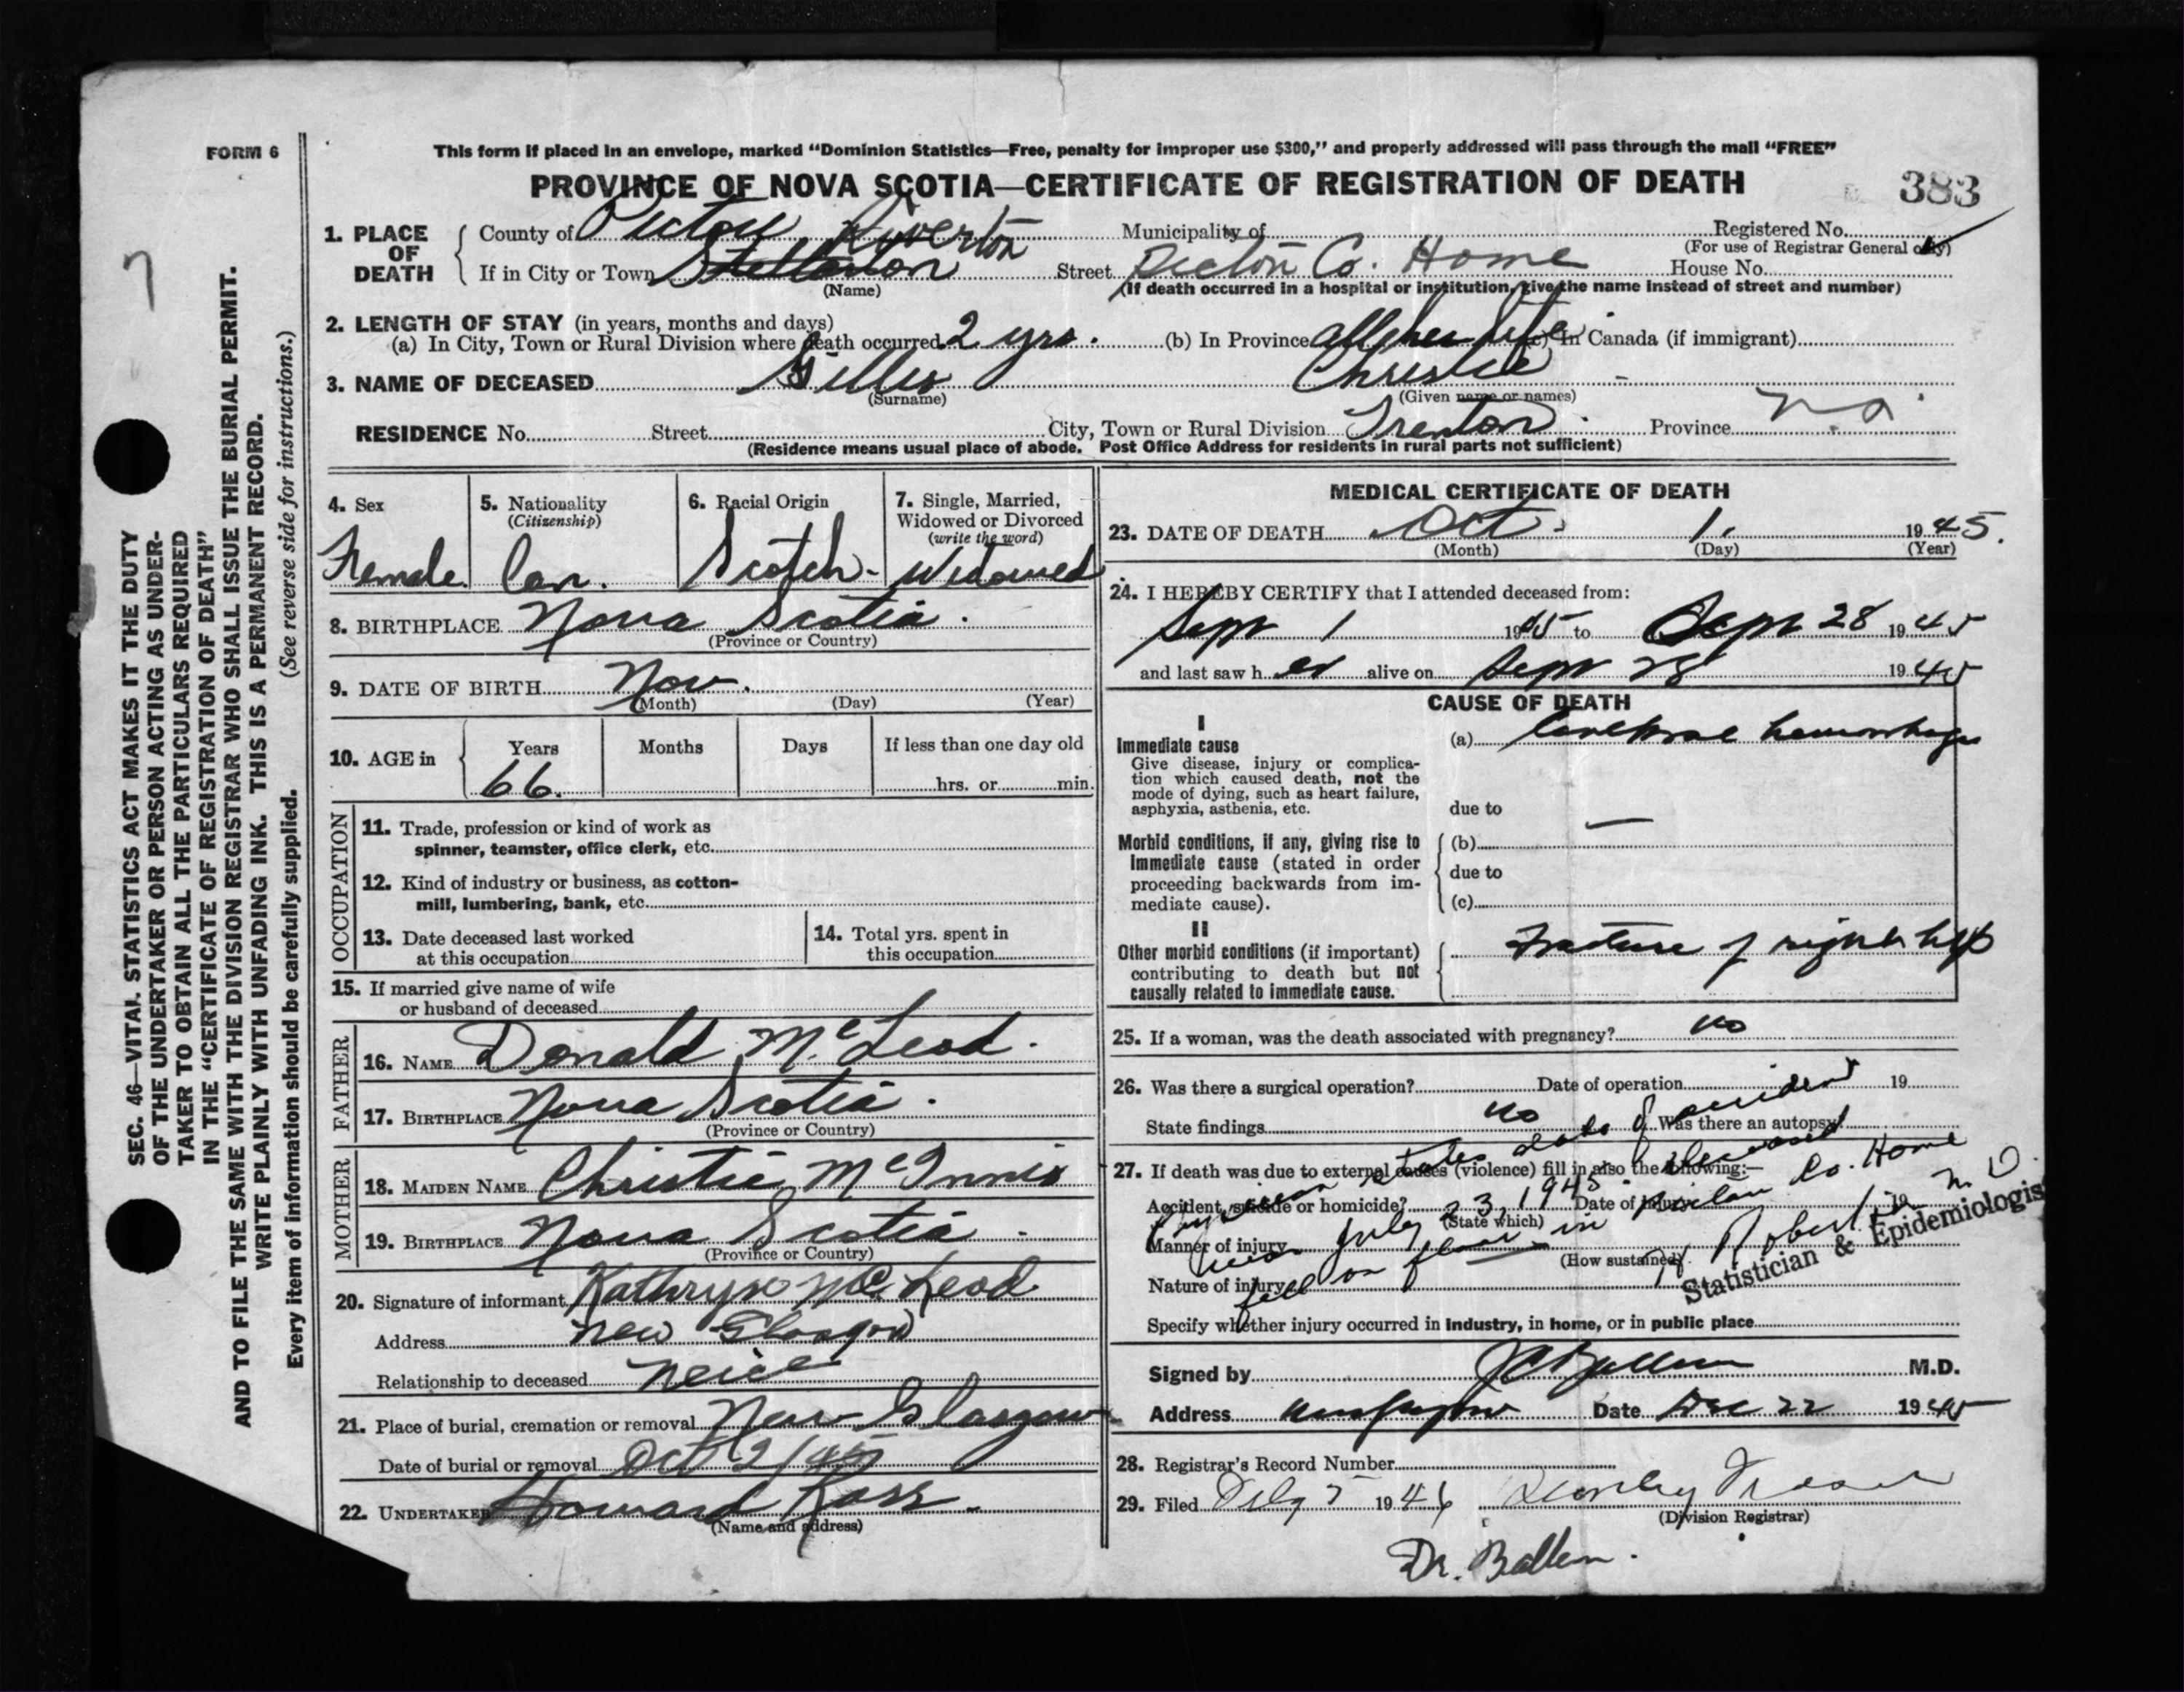 FORM 6
This form if placed in an envelope, marked "Dominion Statistics—Free, penalty for improper use $300," and properly addressed will pass through the mail "FREE"
PROVINCE OF NOVA SCOTIA—CERTIFICATE OF REGISTRATION OF DEATH
383
7
SEC. 46—VITAL STATISTICS ACT MAKES IT THE DUTY
OF THE UNDERTAKER OR PERSON ACTING AS UNDER-
TAKER TO OBTAIN ALL THE PARTICULARS REQUIRED
IN THE "CERTIFICATE OF REGISTRATION OF DEATH"
AND TO FILE THE SAME WITH THE DIVISION REGISTRAR WHO SHALL ISSUE THE BURIAL PERMIT.
WRITE PLAINLY WITH UNFADING INK. THIS IS A PERMANENT RECORD.
Every item of information should be carefully supplied. (See reverse side for instructions.)
1. PLACE OF DEATH
County of Pictou Riverton Municipality of Registered No.
(For use of Registrar General only)
If in City or Town Stellarton Street Pictou Co. Home House No.
(Name) (If death occurred in a hospital or institution, give the name instead of street and number)
2. LENGTH OF STAY (in years, months and days)
(a) In City, Town or Rural Division where death occurred 2 yrs. (b) In Province all her life (c) In Canada (if immigrant)
3. NAME OF DECEASED Gillis Christie
(Surname) (Given name or names)
RESIDENCE No. Street City, Town or Rural Division Trenton Province N.S.
(Residence means usual place of abode. Post Office Address for residents in rural parts not sufficient)
4. Sex Female
5. Nationality (Citizenship) Can.
6. Racial Origin Scotch
7. Single, Married, Widowed or Divorced (write the word) Widowed
8. BIRTHPLACE Nova Scotia.
(Province or Country)
9. DATE OF BIRTH Nov.
(Month) (Day) (Year)
10. AGE in Years Months Days If less than one day old
66. hrs. or min.
OCCUPATION
11. Trade, profession or kind of work as
spinner, teamster, office clerk, etc.
12. Kind of industry or business, as cotton-
mill, lumbering, bank, etc.
13. Date deceased last worked
at this occupation
14. Total yrs. spent in
this occupation
15. If married give name of wife
or husband of deceased
FATHER
16. NAME Donald McLeod.
17. BIRTHPLACE Nova Scotia.
(Province or Country)
MOTHER
18. MAIDEN NAME Christie McInnis
19. BIRTHPLACE Nova Scotia.
(Province or Country)
20. Signature of informant Kathryn McLeod
Address New Glasgow
Relationship to deceased Neice
21. Place of burial, cremation or removal New Glasgow
Date of burial or removal Oct 2/45
22. UNDERTAKER Howard Ross
(Name and address)
MEDICAL CERTIFICATE OF DEATH
23. DATE OF DEATH Oct. 1, 1945.
(Month) (Day) (Year)
24. I HEREBY CERTIFY that I attended deceased from:
Sept 1 1945 to Sept 28 1945
and last saw her alive on Sept 28 1945
CAUSE OF DEATH
I
Immediate cause
Give disease, injury or complica-
tion which caused death, not the
mode of dying, such as heart failure,
asphyxia, asthenia, etc.
(a) Cerebral hemorrhage
due to
Morbid conditions, if any, giving rise to
immediate cause (stated in order
proceeding backwards from im-
mediate cause).
(b) —
due to
(c)
II
Other morbid conditions (if important)
contributing to death but not
causally related to immediate cause.
Fracture of right hip
25. If a woman, was the death associated with pregnancy? no
26. Was there a surgical operation? Date of operation 19
State findings no Was there an autopsy
27. If death was due to external causes (violence) fill in also the following:—
Accident, suicide or homicide? Date of injury 19
(State which)
Manner of injury
(How sustained)
Nature of injury
Physician states date of accident
was July 23, 1945. Deceased
fell on floor in Pictou Co. Home
Robertson M.D.
Statistician & Epidemiologist
Specify whether injury occurred in industry, in home, or in public place
Signed by J C Ballem M.D.
Address New Glasgow Date Dec 22 1945
28. Registrar's Record Number
29. Filed 1946 Fraser
(Division Registrar)
Dr. Ballem.